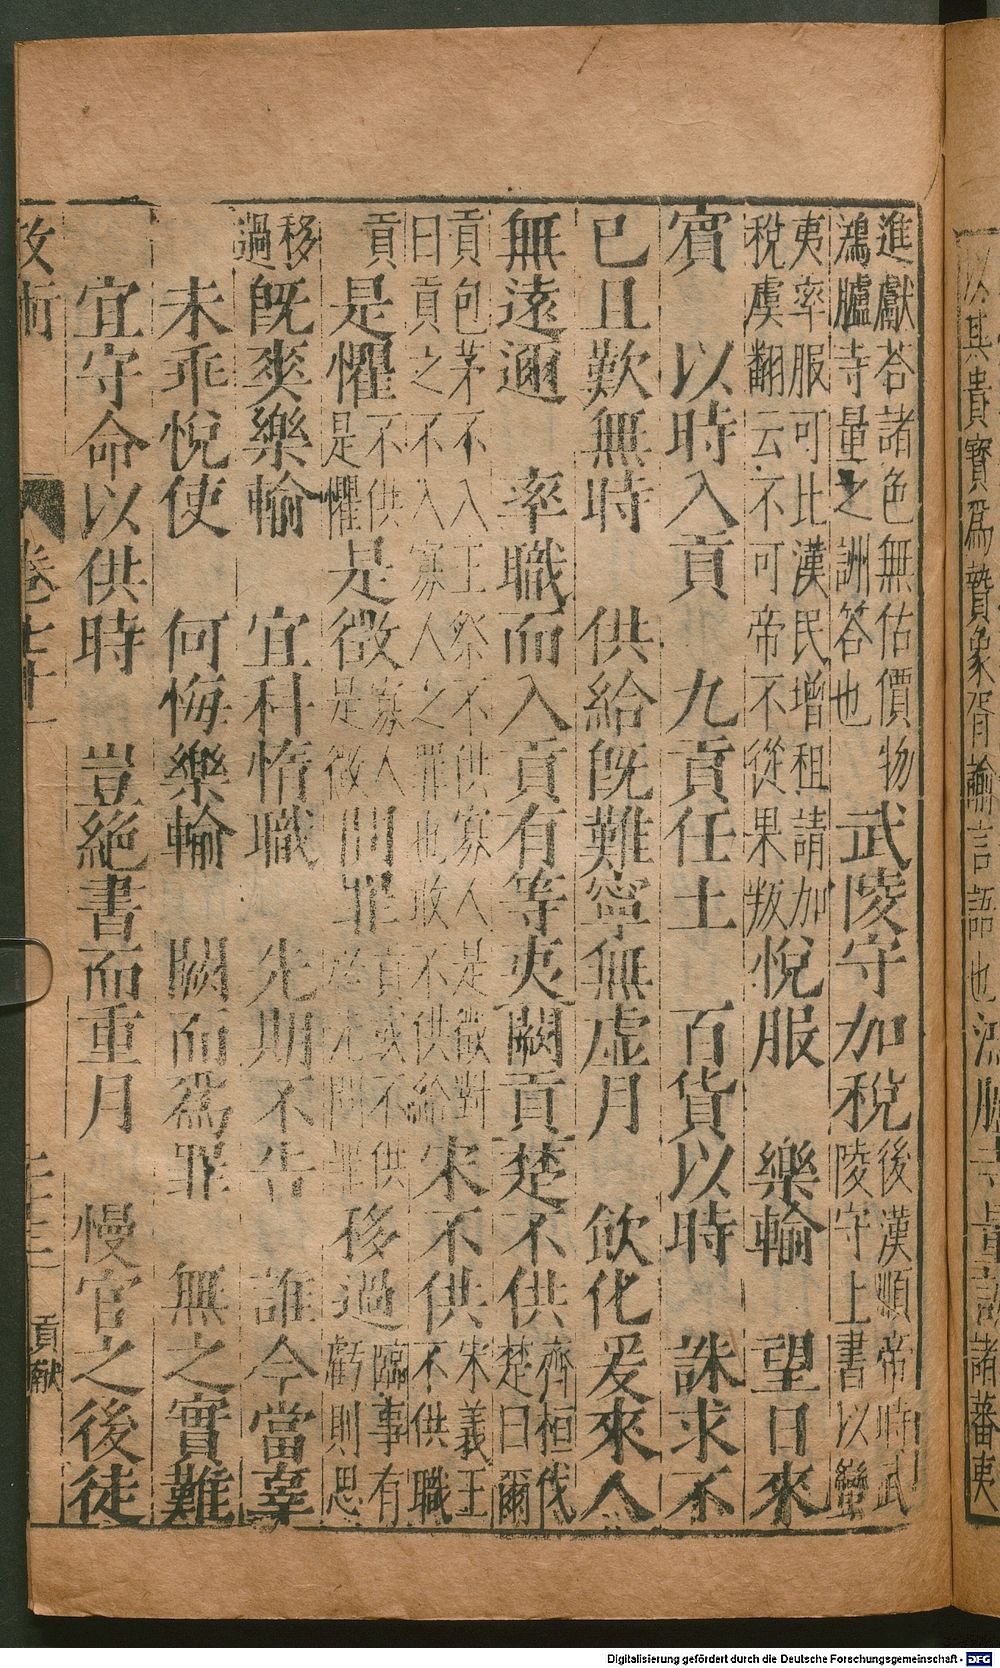 進獻荅諸色無估價物
鴻臚寺量之詶答也
武陵守加稅
後漢順帝時武
陵守上書以蠻
夷率服可比漢民增租請加
稅虞翻云不可帝不從果叛
悅服 樂輸 望日來
賓 以時入貢 九貢任土 百貨以時 誅求不
已且歎無時 供給旣難寧無虛月 飲化爰來人
無遠邇 率職而入貢有等夷闕貢楚不供
齊桓伐
楚曰爾
貢包茅不入王祭不供寡人是徵對
曰貢之不入寡人之罪也敢不供給
宋不供
宋義王
不供職
貢
是懼
不供
是懼
是徵
寡人
是徵
問罪
貢或不供
問罪
移過
臨事有
虧則思
移
過
旣爽樂輸 宜科惰職 先期不告 誰今當辜
未乖悅使 何悔樂輸 闕而爲罪 無之實難
宜守命以供時 豈絕書而重月 慢官之後徒
政術 卷七十一 貢献
以洽其貴寶爲贄象胥諭言語也鴻臚寺量詶諸蕃夷
Digitalisierung gefördert durch die Deutsche Forschungsgemeinschaft - DFG